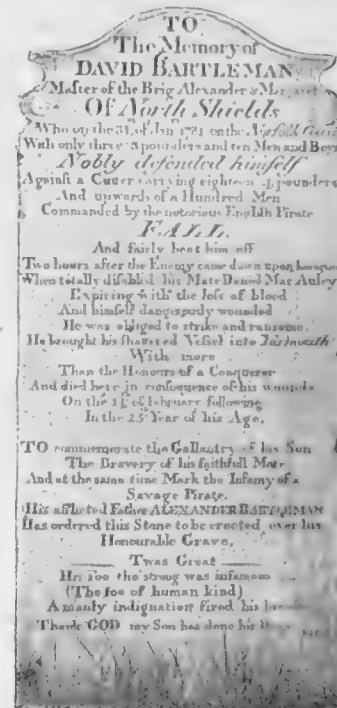 TO
The Memory of
DAVID BARTLEMAN
Master of the Brig Alexander & Margaret
Of North Shields
Who on the 31st of Jan 1781 on the Norfolk Coast
With only three 3 pounders and ten Men and Boys
Nobly defended himself
Against a Cutter carrying eighteen 4 pounders
And upwards of a Hundred Men
Commanded by the notorious English Pirate
FALL
And fairly beat him off
Two hours after the Enemy came down upon him again
When totally disabled his Mate Daniel MacAuley
Expiring with the loss of blood
And himself dangerously wounded
He was obliged to strike and ransome
He brought his shattered Vessel into Yarmouth
With more
Than the Honours of a Conqueror
And died here in consequence of his wounds
On the of February following
In the 25 Year of his Age.
TO commemorate the Gallantry of his Son
The Bravery of his faithfull Mate
And at the same time Mark the Infamy of a
Savage Pirate.
His afflicted Father ALEXANDER BARTLEMAN
Has ordered this Stone to be erected over his
Honourable Grave.
Twas Great
His foe tho' strong was infamous
(The foe of human kind)
A manly indignation fired his breast
Thank GOD my Son has done his Duty